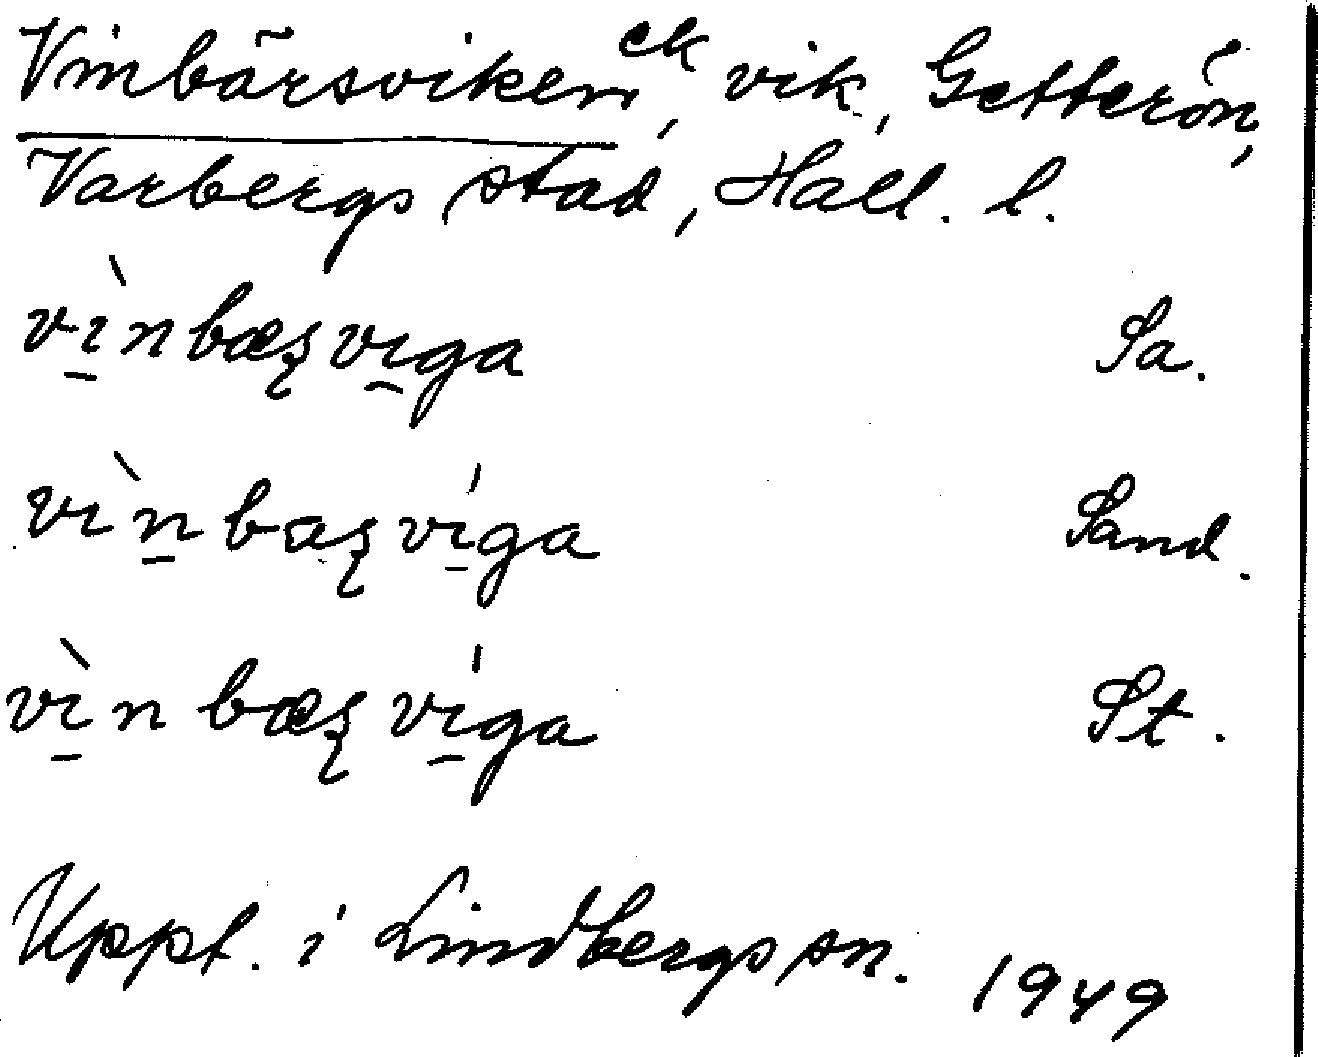 Vinbärsviken ek, vik, Getterön,
Varbergs stad, Hall. l.
vı̱̀nbæʂvı̱ga Sa.
vı̀ṉbaʂvı̱́ga Sand.
vı̱̀nbæʂvı̱́ga St.
Uppt. i Lindbergs sn. 1949